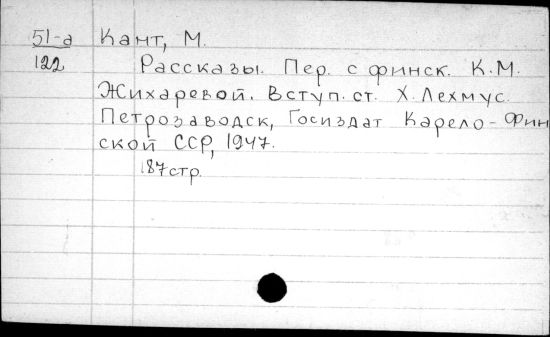 51-а Кант, М.
122 Рассказы. Пер. с финск. К.М.
Жихаревой. Вступ. ст. Х. Лехмус.
Петрозаводск, Госиздат Карело-Фин
ской ССР, 1947.
187 стр.